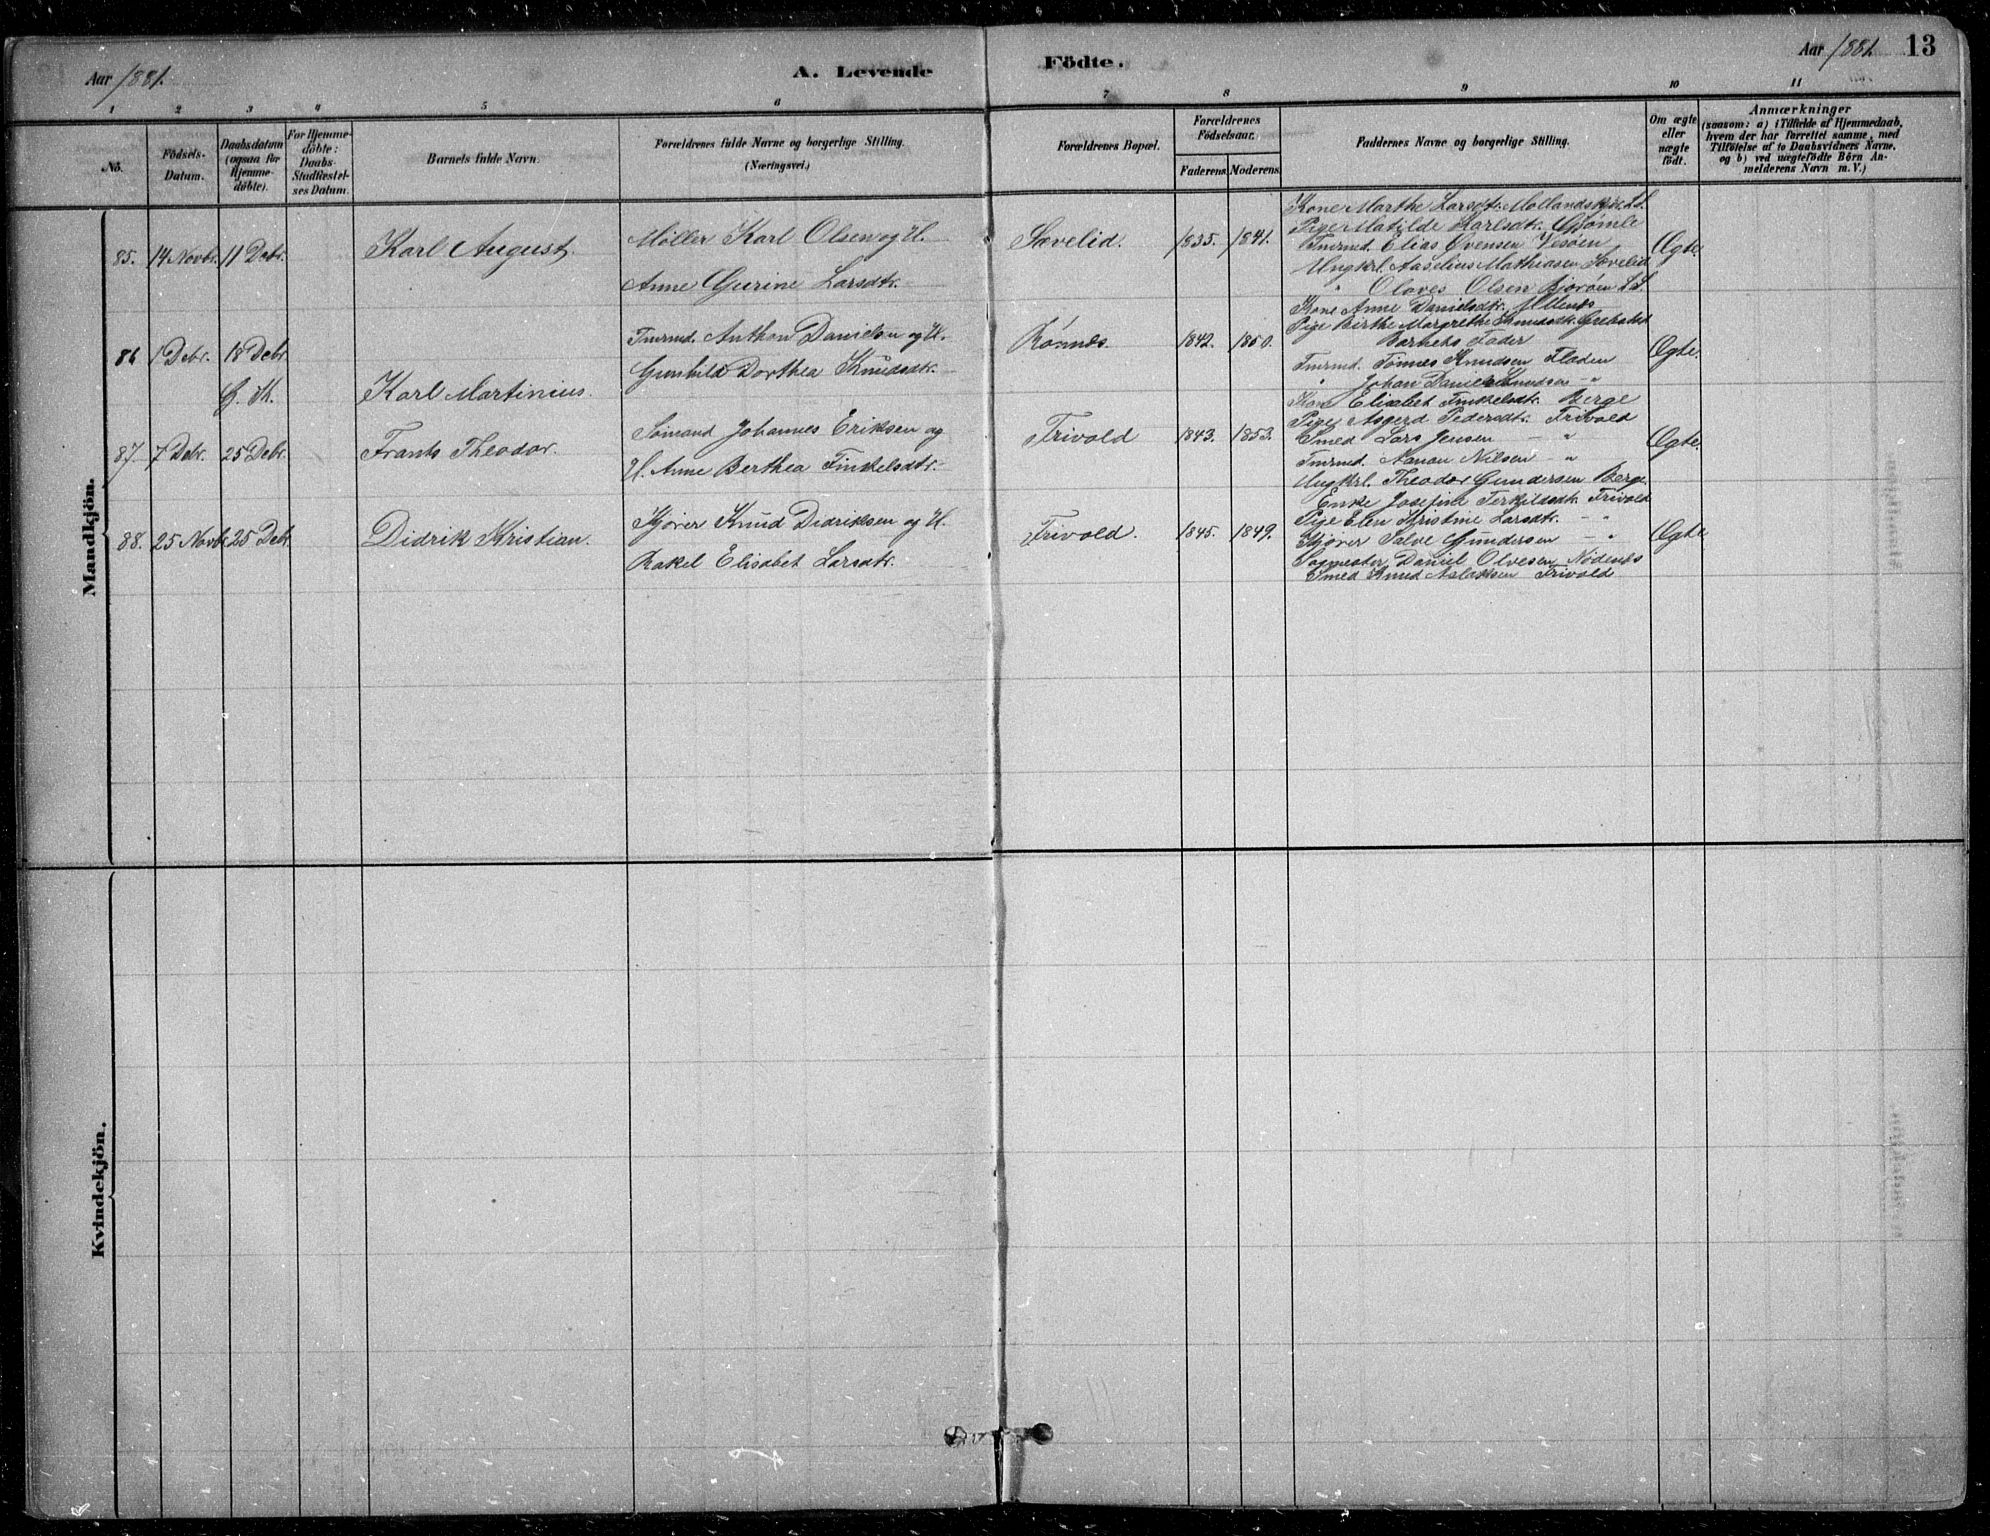 Aar 1881. A. Levende Födte. Aar 1881. 13
1 2 3 4 5 6 7 8 9 10 11
No. Födsels-Datum. Daabsdatum (ogsaa for Hjemme-döbte). For Hjemme-döbte: Daabs-Stadfæstel-ses Datum. Barnets fulde Navn. Forældrenes fulde Navne og borgerlige Stilling. (Næringsvei.) Forældrenes Bopæl. Forældrenes Födselsaar. Faderens Moderens. Faddernes Navne og borgerlige Stilling. Om ægte eller uægte födt. Anmærkninger (saasom: a) i Tilfælde af Hjemmedaab, hvem der har forrettet samme, med Tilföielse af to Daabsvidners Navne, og b) ved uægtefödte Börn An-melderens Navn m. V.)
Mandkjön.
85. 14 Novbr. 11 Debr. Karl August. Møller Karl Olsen og H.
Anne Gurine Larsdtr. Sævelid. 1835. 1841. Ægte.
Kone Marthe Larsdtr.
Pige Matilde Karlsdtr. Gjømle
Tmrmd. Elias Evensen Vesøen
Ungkrl. Aaselius Mathiasen Sævelid
" Olaves Olsen Bjorøen L.S.
86 1 Debr. 18 Debr. Karl Martinius. Tmrmd. Anthon Danielsen og H.
Gunhild Dorthea Knudsdtr. Rónnes. 1842. 1850. Ægte.
Kone Anne Danielsdtr.
Pige Birthe Margrethe Knudsdtr.
Barnets Fader
Tmrmd. Tønnes Knudsen Fladen
" Johan Daniel Knudsen "
87. 7 Debr. 25 Debr. Frants Theodor. Sømand Johannes Eriksen og
H. Anne Berthea Finkelsdtr. Trivold 1843. 1853. Ægte.
Kone Elisabet Finkelsdtr. Berge
Pige Asgerd Pedersdtr. Trivold
Smed Lars Jensen — "
Tmrmd. Nilsen — "
Ungkrl. Theodor Gundersen Berge
88. 25 Novbr. 25 Debr. Didrik Kristian. Kjører Knud Didriksen og H.
Rakel Elisabet Larsdtr. Trivold. 1845. 1849. Ægte
Enke Josefine Terkildsdtr. Trivold
Pige Elen Kristine Larsdtr. — "
Kjører Salve Gundersen — "
Sagmester Daniel Olvesen Nødenes
Smed Knud Aslaksen Trivold
Kvindekjön.